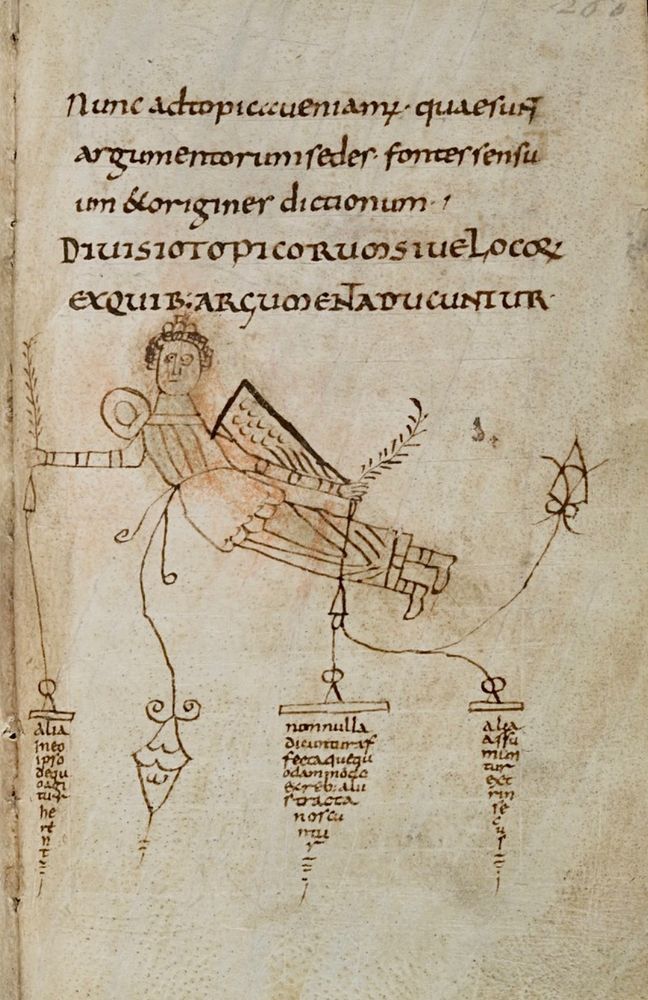 Nunc ad topica ueniamꝰ · quae sunt
argumentorum sedes · fontes sensu
um &origines dictionum ·
DIUISIO TOPICORUM SIUE LOCOꝜ
EX QUIB; ARGUMENTA DUCUNTUR ·
alia
in eo
ipso
de quo
agi
tur
he
rent
nonnulla
dicuntur af
fecta quae qu
odammodo
ex reb; aliis
tracta
noscu
ntu
r
alia
assu
mun
tur
ext
rin
se
cus